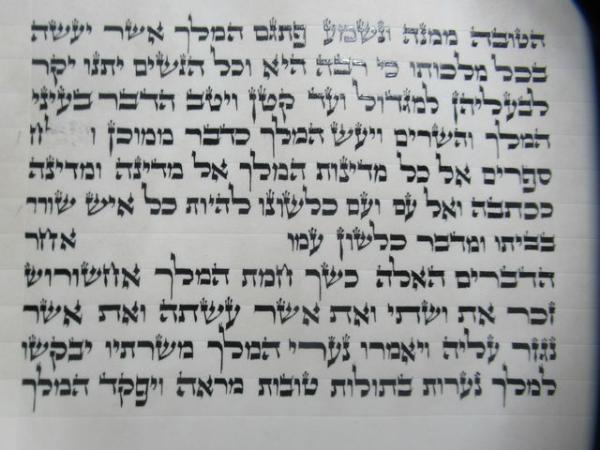 הטובה ממנה ונשמע פתגם המלך אשר יעשה
בכל מלכותו כי רבה היא וכל הנשים יתנו יקר
לבעליהן למגדול ועד קטן וייטב הדבר בעיני
המלך והשרים ויעש המלך כדבר ממוכן ו לח
ספרים אל כל מדינות המלך אל מדינה ומדינה
ככתבה ואל עם ועם כלשונו להיות כל איש שורר
בביתו ומדבר כלשון עמו אחר
הדברים האלה כשך חמת המלך אחשורוש
זכר את ושתי ואת אשר עשתה ואת אשר
נגזר עליה ויאמרו נערי המלך משרתיו יבקשו
למלך נערות בתולות טובות מראה ויפקד המלך